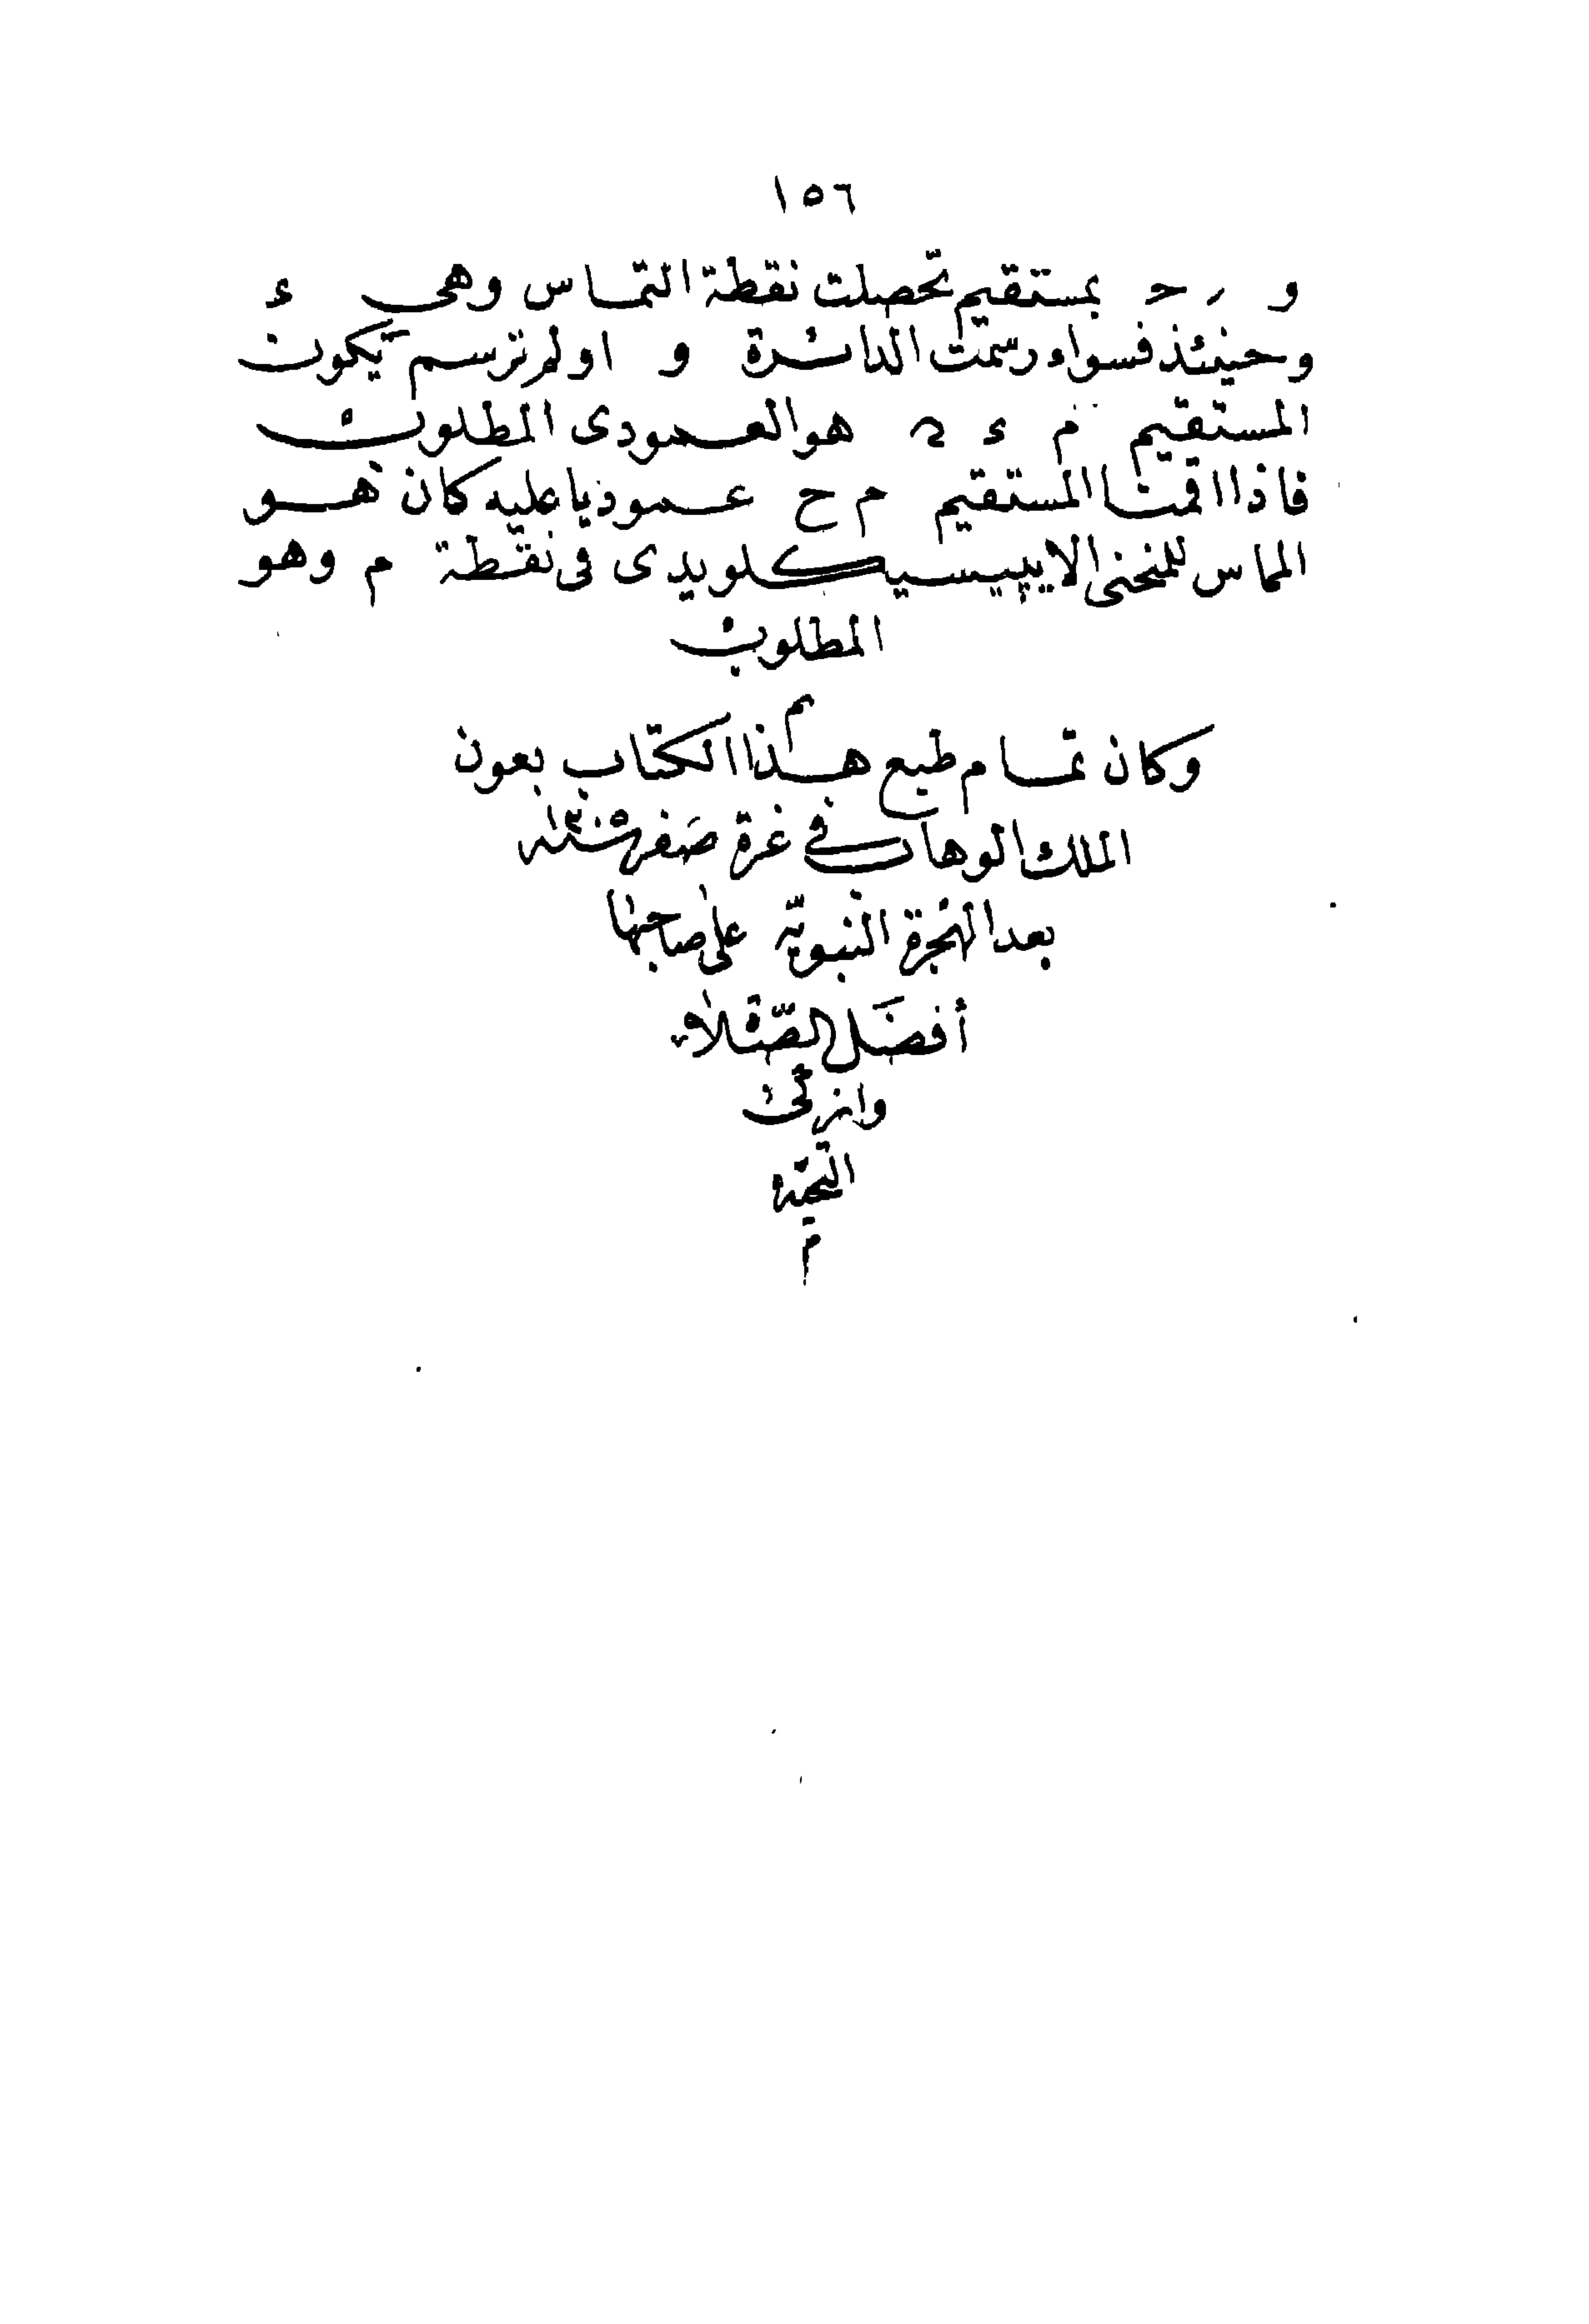 ١٥٦
و ر ح بمستقيم تحصلت نقطة التماس وهى ء
وحينئذ فسواء رسمت الدائرة و او لم ترسم يكون
المستقيم م ء هو العمودى المطلوب
فاذا اقمنا المستقيم م ح عموديا عليه كان هو
المماس للمنحنى الايپيسيكلويدى فى نقطة م وهو
المطلوب
م
وكان تمام طبع هذا الكتاب بعون
الملك الوهاب فى غرة صفر سنة
بعد الهجرة النبويّة على صاحبها
أفضَل الصّلاة
وازكى
التحية
م